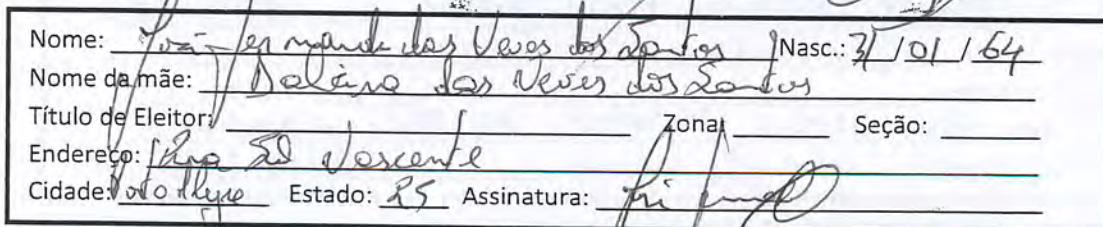 Nome: José Fernando das Neves dos Santos Nasc.: 31/01/64
Nome da mãe: Dalcina das Neves dos Santos
Título de Eleitor: Zona: Seção:
Endereço: Rua Sol Nascente
Cidade: Porto Alegre Estado: RS Assinatura: